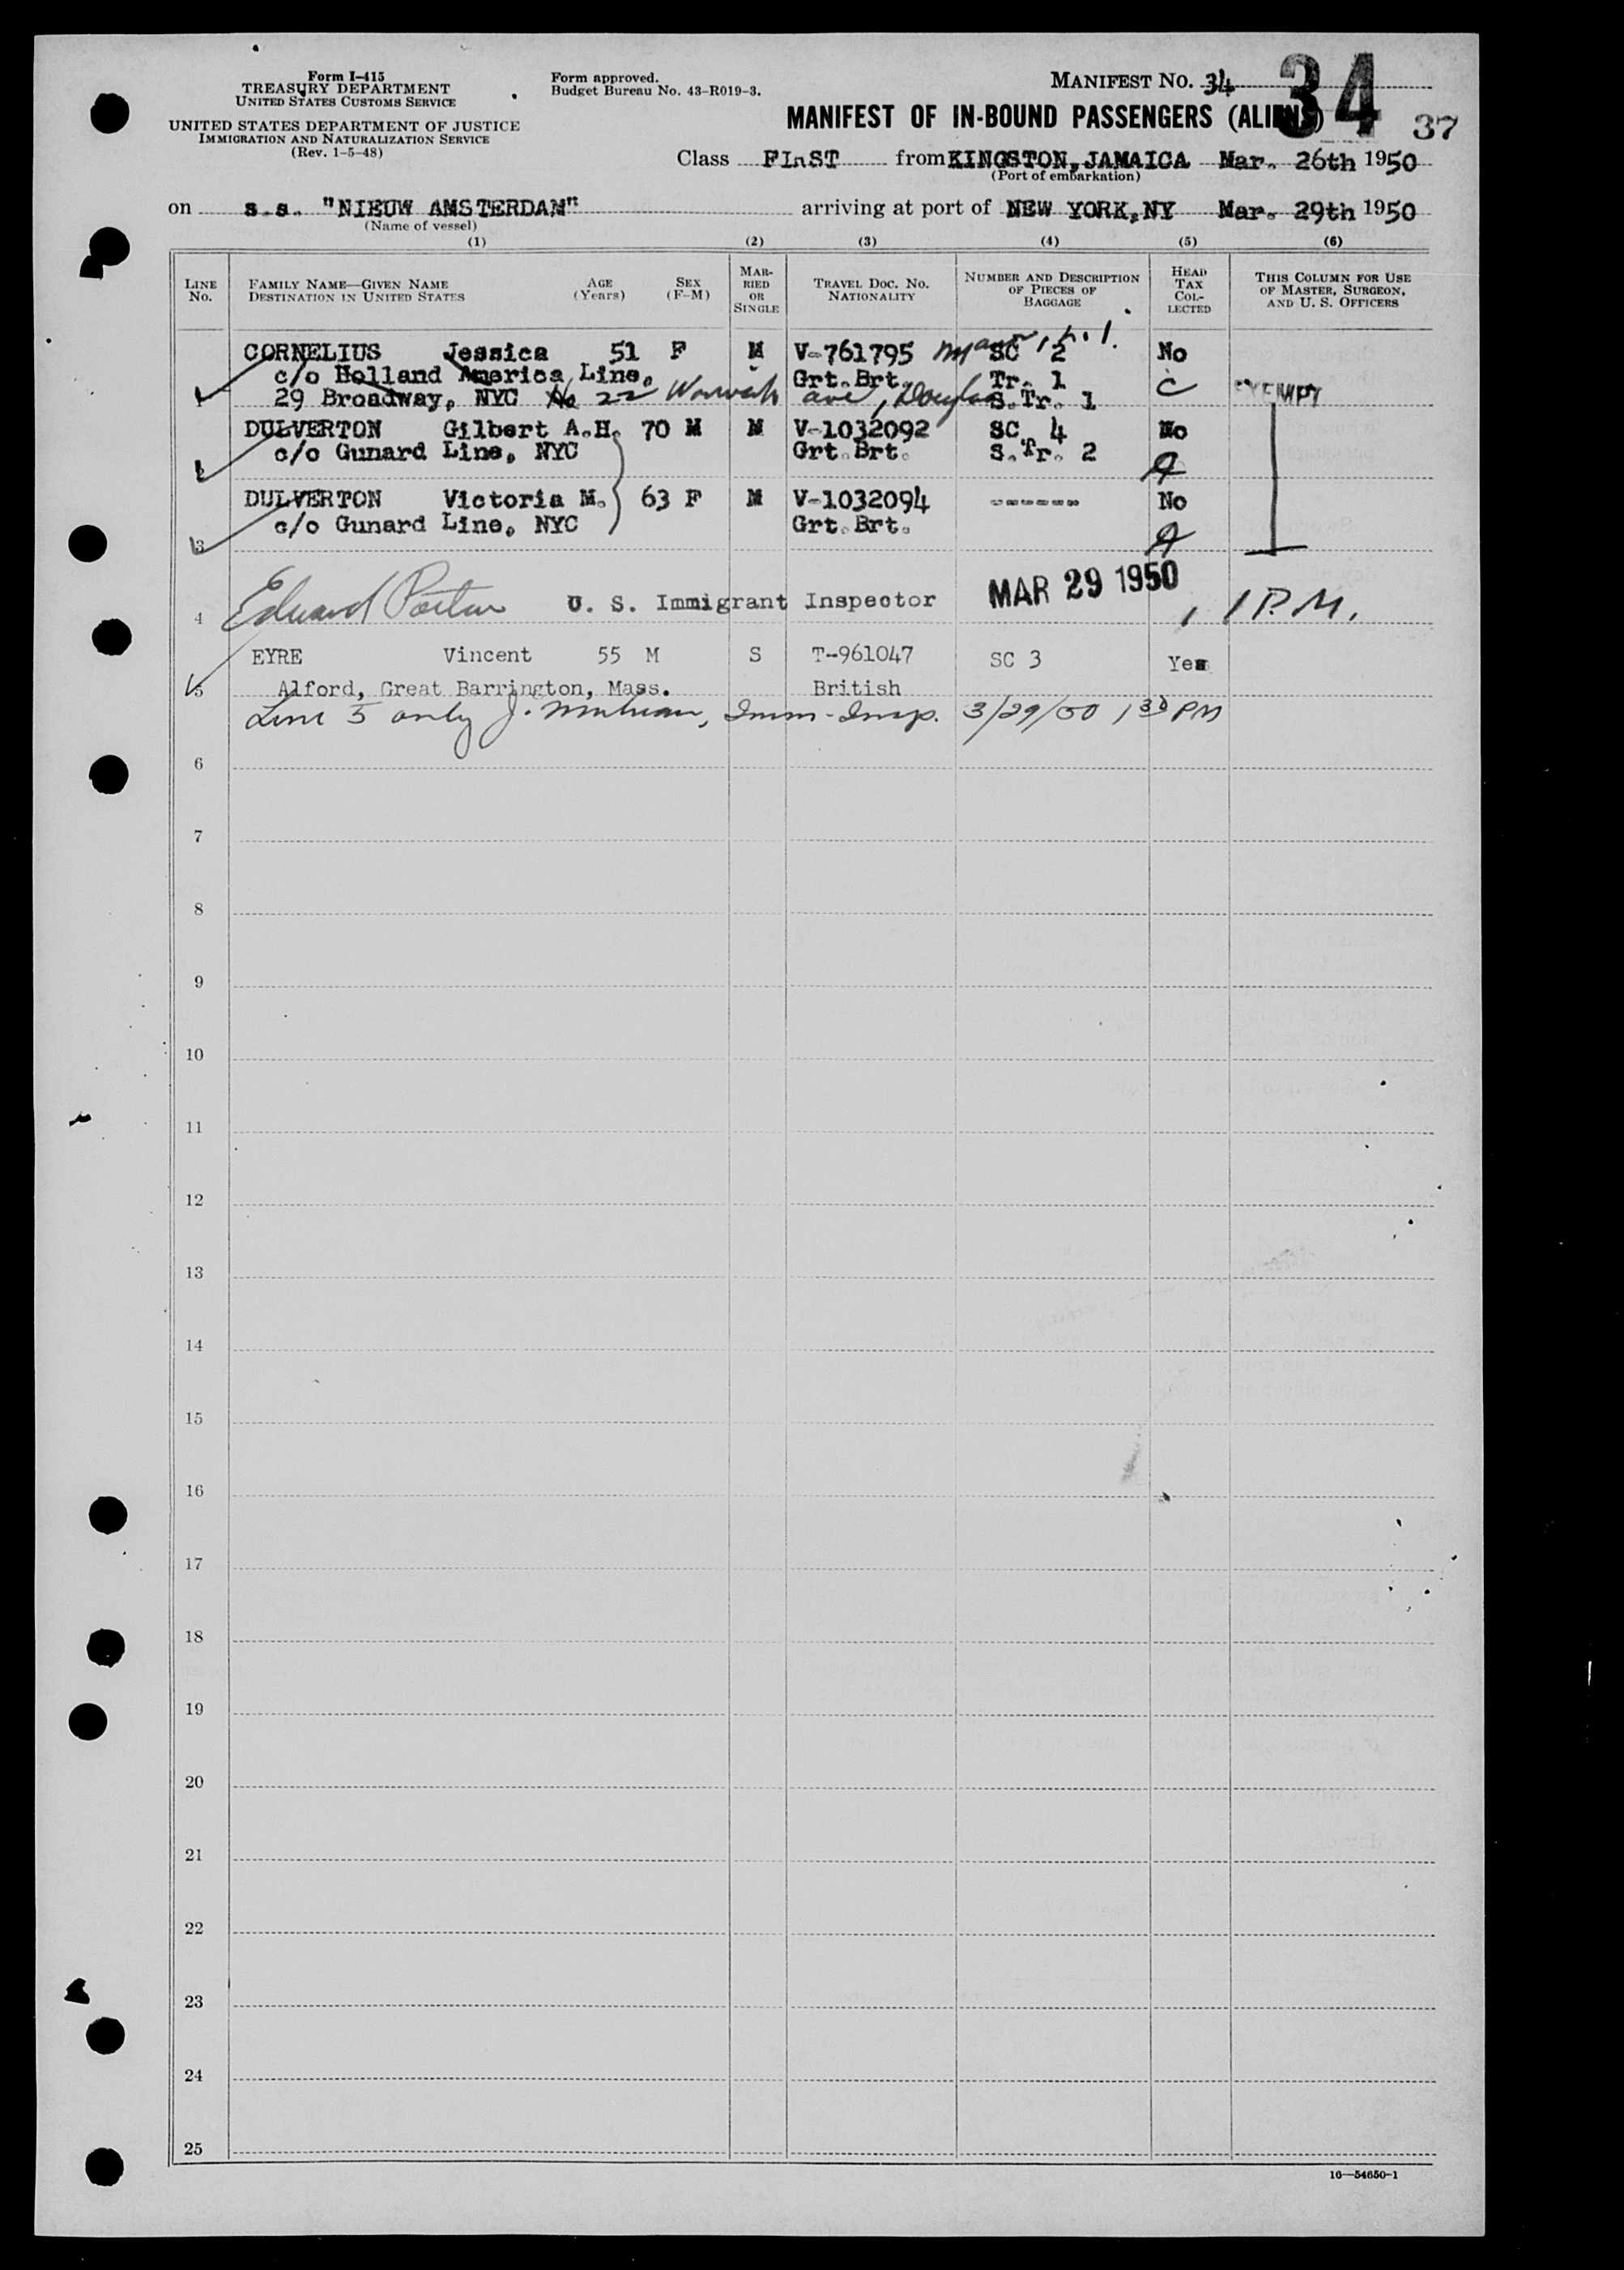 Form I-415
TREASURY DEPARTMENT
UNITED STATES CUSTOMS SERVICE
UNITED STATES DEPARTMENT OF JUSTICE
IMMIGRATION AND NATURALIZATION SERVICE
(Rev. 1-5-48)
Form approved.
Budget Bureau No. 43-R019-3.
MANIFEST NO. 34
34
MANIFEST OF IN-BOUND PASSENGERS (ALIENS)
37
Class FIRST from KINGSTON, JAMAICA Mar. 26th 1950
(Port of embarkation)
on s.s. "NIEUW AMSTERDAM" arriving at port of NEW YORK, NY Mar. 29th 1950
(Name of vessel)
(1) (2) (3) (4) (5) (6)
LINE NO.
FAMILY NAME—GIVEN NAME
DESTINATION IN UNITED STATES
AGE (Years)
SEX (F-M)
MARRIED OR SINGLE
TRAVEL DOC. NO.
NATIONALITY
NUMBER AND DESCRIPTION OF PIECES OF BAGGAGE
HEAD TAX COLLECTED
THIS COLUMN FOR USE OF MASTER, SURGEON, AND U. S. OFFICERS
CORNELIUS Jessica 51 F M V-761795 Manor, L.I. SC 2 No
c/o Holland America Line, Grt.Brt. Tr. 1 C
1 29 Broadway, NYC 22 Warwick ave, Douglas S.Tr. 1 EXEMPT
DULVERTON Gilbert A.H. 70 M M V-1032092 SC 4 No
2 c/o Gunard Line, NYC Grt.Brt. S.Tr. 2 A
DULVERTON Victoria M. 63 F M V-1032094 ------ No
3 c/o Gunard Line, NYC Grt.Brt. A
4 Edward U. S. Immigrant Inspector MAR 29 1950, 1 P.M.
EYRE Vincent 55 M S T-961047 SC 3 Yes
5 Alford, Great Barrington, Mass. British
Line 5 only J. Imm-Insp. 3/29/50 1 30 PM
6
7
8
9
10
11
12
13
14
15
16
17
18
19
20
21
22
23
24
25
16—54650-1